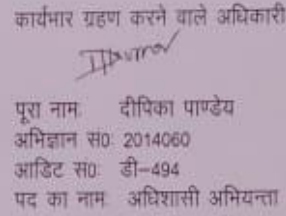 कार्यभार ग्रहण करने वाले अधिकारी
पूरा नाम: दीपिका पाण्डेय
अभिज्ञान सं0: 2014060
आडिट सं0: डी-494
पद का नाम: अधिशासी अभियन्ता